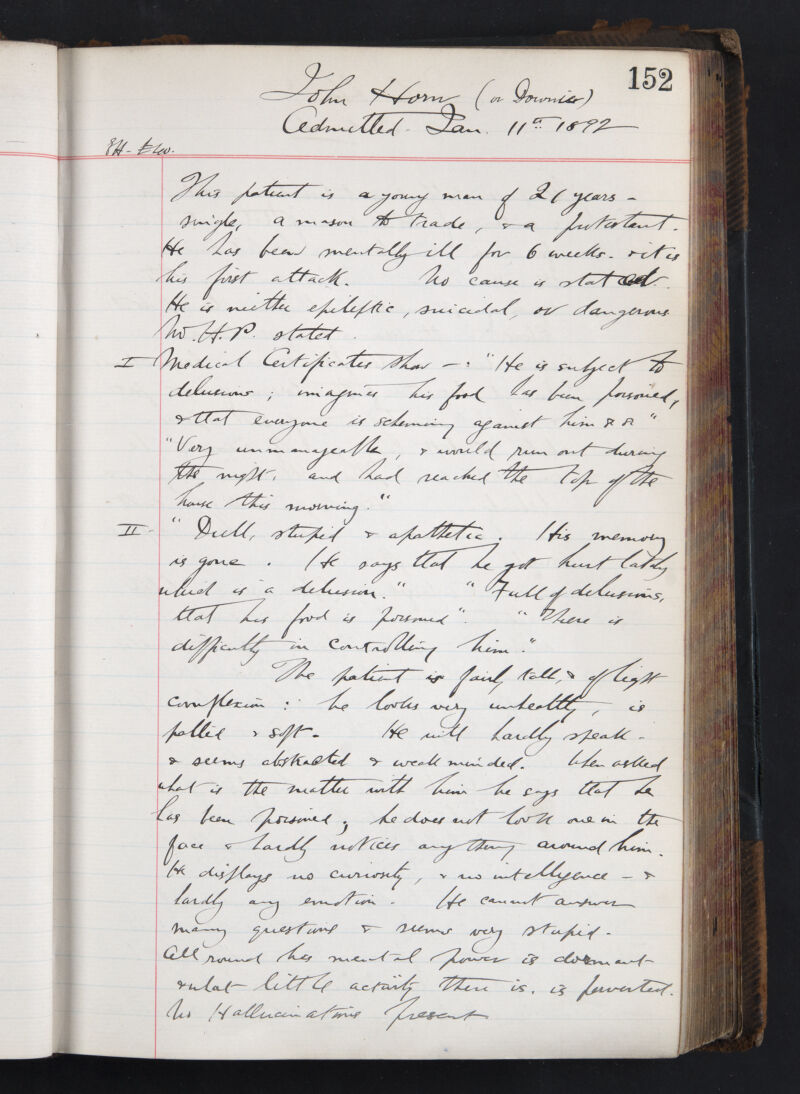 152
John Horn (or Downie)
Admitted. Jan. 11th 1892
This patient is a young man of 21 years -
single, a mason to trade, & a protestant.
He has been mentally ill for 6 weeks. & it is
his first attack. No cause is stated.
He is neither epileptic, suicidal, or dangerous
No. H.P. stated.
I Medical Certificates show -: "He is subject to
delusions; imagines his food has been poisoned,
& that everyone is scheming against him & &"
"Very unmanageable, & would run out during
the night. and had reached the top of the
house this morning."
II - "Dull, stupid & apathetic. His memory
is gone. He says that he got hurt lately
which is a delusion." "Full of delusions,
that his food is poisoned". "There is
difficulty in controlling him."
The patient is fairly tall, & of light
complexion: he looks very unhealthy, is
pallid & soft. He will hardly speak -
& seems abstracted & weak minded. When asked
what is the matter with him he says that he
has been poisoned; he does not look one in the
face & hardly notices any thing around him.
He displays no curiosity, & no intelligence - &
hardly any emotion. He cannot answer
many questions & seems very stupid.
All round his mental power is dormant
& what little activity there is. is perverted.
No Hallucinations present